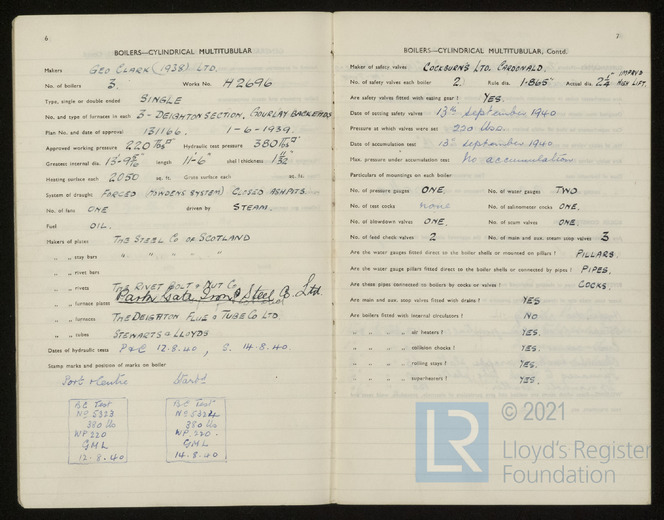 6
BOILERS—CYLINDRICAL MULTITUBULAR
Makers GEO CLARK (1938) LTD.
No. of boilers 3. Works No. H2696
Type, single or double ended SINGLE
No. and type of furnaces in each 3 - DEIGHTON SECTION, GOURLAY BACK ENDS
Plan No. and date of approval 131166. 1-6-1939.
Approved working pressure 220 lbs□" Hydraulic test pressure 380 lbs□"
Greatest internal dia. 13'-9 9/16" length 11'-6" shell thickness 1 9/32"
Heating surface each 2050 sq. ft. Grate surface each sq. ft.
System of draught FORCED (HOWDENS SYSTEM) CLOSED ASHPITS.
No. of fans ONE driven by STEAM.
Fuel OIL.
Makers of plates THE STEEL Co OF SCOTLAND
„ „ stay bars " " " "
„ „ rivet bars
„ „ rivets THE RIVET BOLT & NUT Co
„ „ furnace plates Park Gate Iron & Steel Co. Ltd
„ „ furnaces THE DEIGHTON FLUE & TUBE CO LTD
„ „ tubes STEWARTS & LLOYDS
Dates of hydraulic tests P & C 12.8.40, S. 14.8.40.
Stamp marks and position of marks on boiler
Port & Centre Starbd
B.C. Test
No 5323
380 lbs
WP. 220
GHL
12.8.40
B.C. Test
No 5324
380 lbs
WP. 220.
GHL
14.8.40
7
BOILERS—CYLINDRICAL MULTITUBULAR, Contd.
Maker of safety valves COCKBURNS LTD. CARDONALD.
No. of safety valves each boiler 2. Rule dia. 1.865" Actual dia. 2¼" IMPRVD HIGH LIFT.
Are safety valves fitted with easing gear? YES.
Date of setting safety valves 13th September 1940
Pressure at which valves were set 220 lbs.
Date of accumulation test 13th September 1940
Max. pressure under accumulation test No accumulation
Particulars of mountings on each boiler
No. of pressure gauges ONE. No. of water gauges TWO
No. of test cocks none No. of salinometer cocks ONE.
No. of blowdown valves ONE. No. of scum valves ONE.
No. of feed check valves 2 No. of main and aux. steam stop valves 3
Are the water gauges fitted direct to the boiler shells or mounted on pillars? PILLARS.
Are the water gauge pillars fitted direct to the boiler shells or connected by pipes? PIPES.
Are these pipes connected to boilers by cocks or valves? COCKS.
Are main and aux. stop valves fitted with drains? YES
Are boilers fitted with internal circulators? NO
„ „ „ „ air heaters? YES.
„ „ „ „ collision chocks? YES.
„ „ „ „ rolling stays? YES.
„ „ „ „ superheaters? YES.
© 2021
LR
Lloyd's Register
Foundation